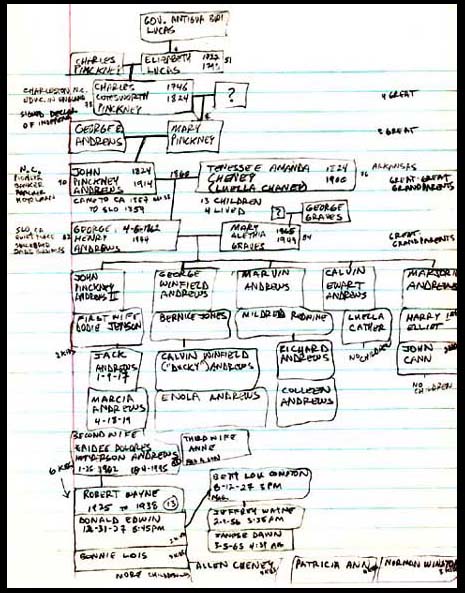 GOV. ANTIGUA BWI
LUCAS
CHARLES
PINCKNEY
ELIZABETH
LUCAS
1722
51
CHARLESTON, N.C.
EDUC. IN ENGLAND
OF INDEPEN
CHARLES
COTESWORTH
PINCKNEY
1746
1824
?
4 GREAT
GEORGE
ANDREWS
MARY
PINCKNEY
3 GREAT
N.C.
BANKER
JOHN
PINCKNEY
ANDREWS
1824
1914
90
1860
TENESSEE AMANDA
CHENEY
(LUELLA CHANEY)
1824
1900
76
ARKANSAS
GREAT-GREAT
GRANDPARENTS
CAME TO CA 1857
TO SLO 1859
13 CHILDREN
4 LIVED
?
GEORGE
GRAVES
SLO, CA
82
GEORGE
HENRY
ANDREWS
4-6-1862
1944
MARY
ALETHIA
GRAVES
1865
1949
84
GREAT
GRANDPARENTS
JOHN
PINCKNEY
ANDREWS II
GEORGE
WINFIELD
ANDREWS
MARVIN
ANDREWS
CALVIN
EWART
ANDREWS
MARJORIE
ANDREWS
FIRST WIFE
DODIE JEPSON
BERNICE JONES
MILDRED REDNINE
LUELLA
CATHER
HARRY
ELLIOT
2 KIDS
JACK
ANDREWS
1-9-17
CALVIN WINFIELD
("DUCKY") ANDREWS
RICHARD
ANDREWS
NO CHILDREN
JOHN
CANN
MARCIA
ANDREWS
4-18-19
ENOLA ANDREWS
COLLEEN
ANDREWS
NO
CHILDREN
SECOND WIFE
HAIDEE DOLORES
HENDERSON ANDREWS
THIRD WIFE
ANNE
6 KIDS
ROBERT WAYNE
1925 TO 1938 13
BETTY LOU COMPTON
8-12-27 3PM
DONALD EDWIN
12-31-27 8:45PM
JEFFREY WAYNE
2-2-56 3:38AM
JANESE DAWN
3-5-63 4:39 AM
BONNIE LOIS
MORE CHILDREN
ALLEN CHENEY
PATRICIA ANN
NORMAN WINSTON